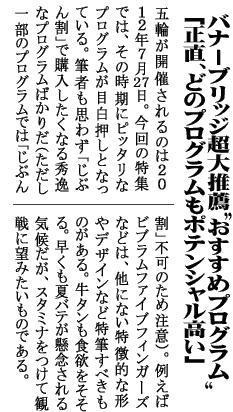 バナーブリッジ超大推薦”おすすめプログラム“
「正直、どのプログラムもポテンシャル高い」
五輪が開催されるのは２０
１２年７月27日。今回の特集
では、その時期にピッタリな
プログラムが目白押しとなっ
ている。筆者も思わず「じぶ
ん割」で購入したくなる秀逸
なプログラムばかりだ（ただし
一部のプログラムでは「じぶん
割」不可のため注意）。例えば
ビブラムファイブフィンガーズ
などは、他にない特徴的な形
やデザインなど特筆すべきも
のがある。牛タンも食欲をそそ
る。早くも夏バテが懸念される
気候だが、スタミナをつけて観
戦に望みたいものである。